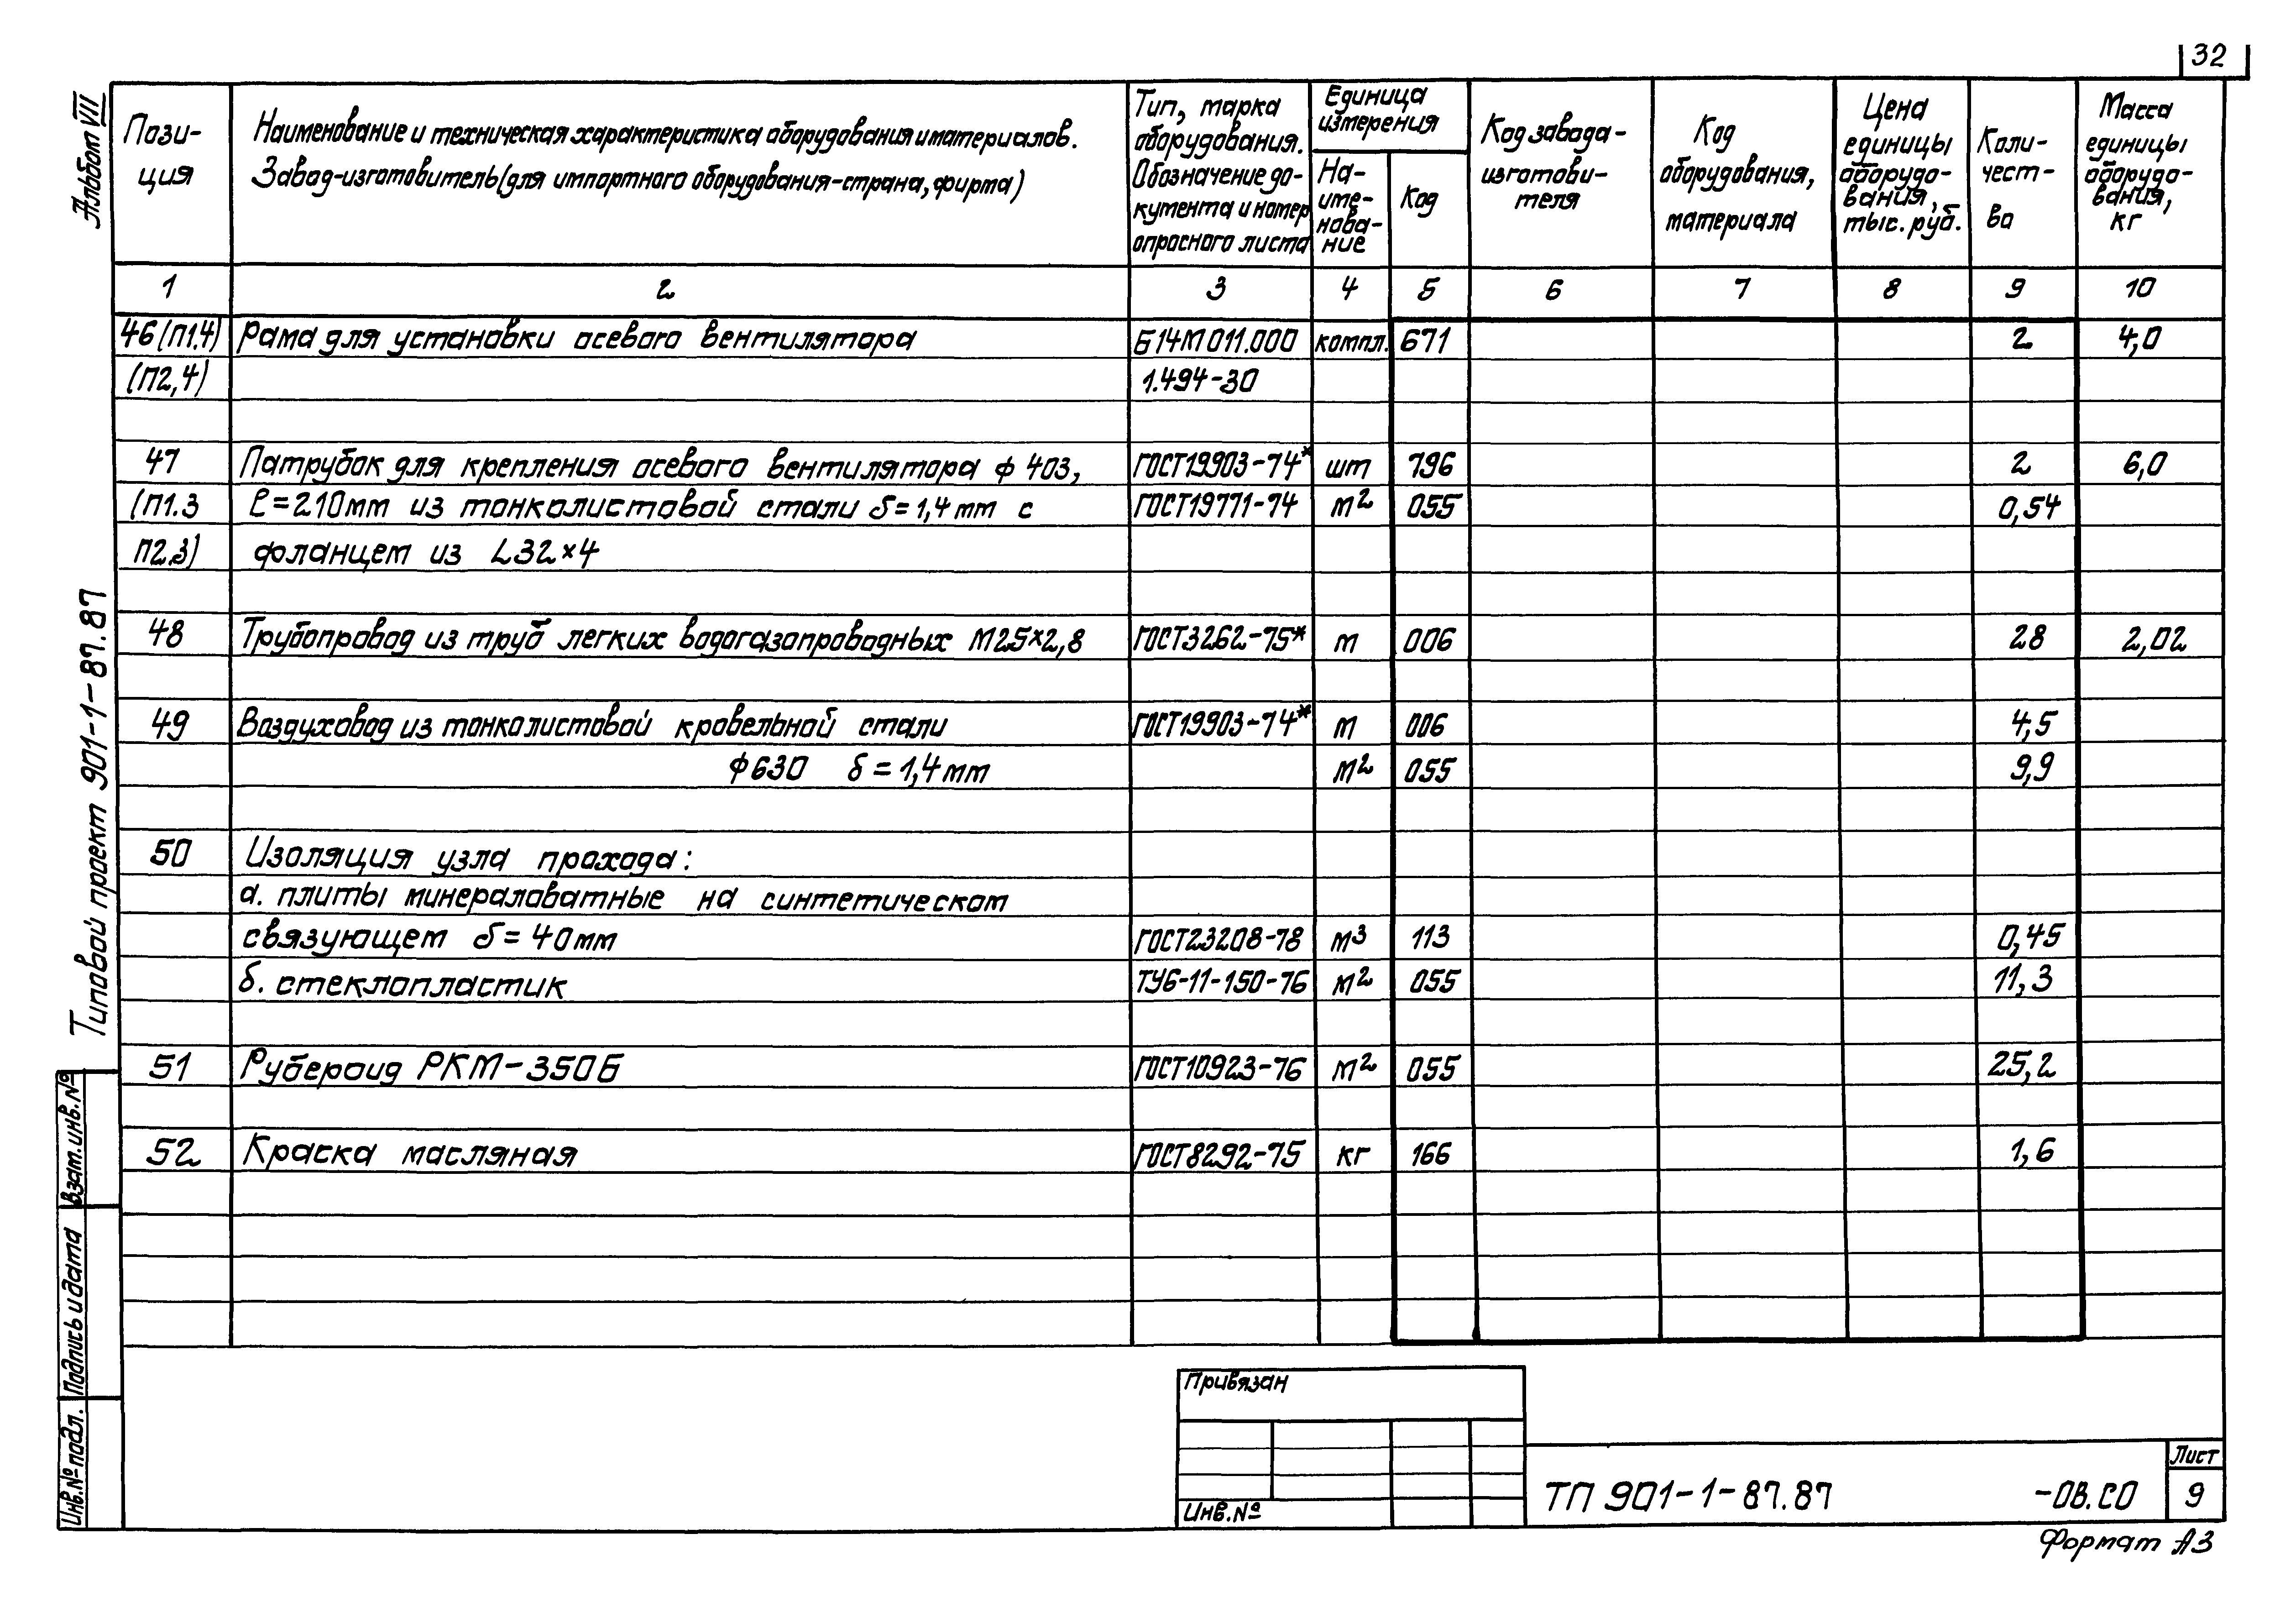 32
Альбом VII
Типовой проект 901-1-87.87
Пози-
ция
Наименование и техническая характеристика оборудования и материалов.
Завод-изготовитель (для импортного оборудования-страна, фирма)
Тип, марка
оборудования.
Обозначение до-
кумента и номер
опросного листа
Единица
измерения
На-
име-
нова-
ние
Код
Код завода-
изготови-
теля
Код
оборудования,
материала
Цена
единицы
оборудо-
вания,
тыс. руб.
Коли-
чест-
во
Масса
единицы
оборудо-
вания,
кг
1 2 3 4 5 6 7 8 9 10
46 (П1.4) Рама для установки осевого вентилятора Б14М011.000 компл. 671 2 4,0
(П2,4) 1.494-30
47 Патрубок для крепления осевого вентилятора ф 403, ГОСТ19903-74* шт 796 2 6,0
(П1.3 ℓ=210мм из тонколистовой стали δ=1,4мм с ГОСТ19771-74 м² 055 0,54
П2.3) фланцем из L32×4
48 Трубопровод из труб легких водогазопроводных М25×2,8 ГОСТ3262-75* м 006 28 2,02
49 Воздуховод из тонколистовой кровельной стали ГОСТ19903-74* м 006 4,5
ф630 δ=1,4мм м² 055 9,9
50 Изоляция узла прохода:
а. плиты минераловатные на синтетическом
связующем δ=40мм ГОСТ23208-78 м³ 113 0,45
б. стеклопластик ТУ6-11-150-76 м² 055 11,3
51 Рубероид РКМ-350Б ГОСТ10923-76 м² 055 25,2
52 Краска масляная ГОСТ8292-75 кг 166 1,6
Взам.инв.№
Подпись и дата
Инв.№подл.
Привязан
Инв.№
ТП 901-1-87.87 -ОВ.СО
Лист
9
Формат А3